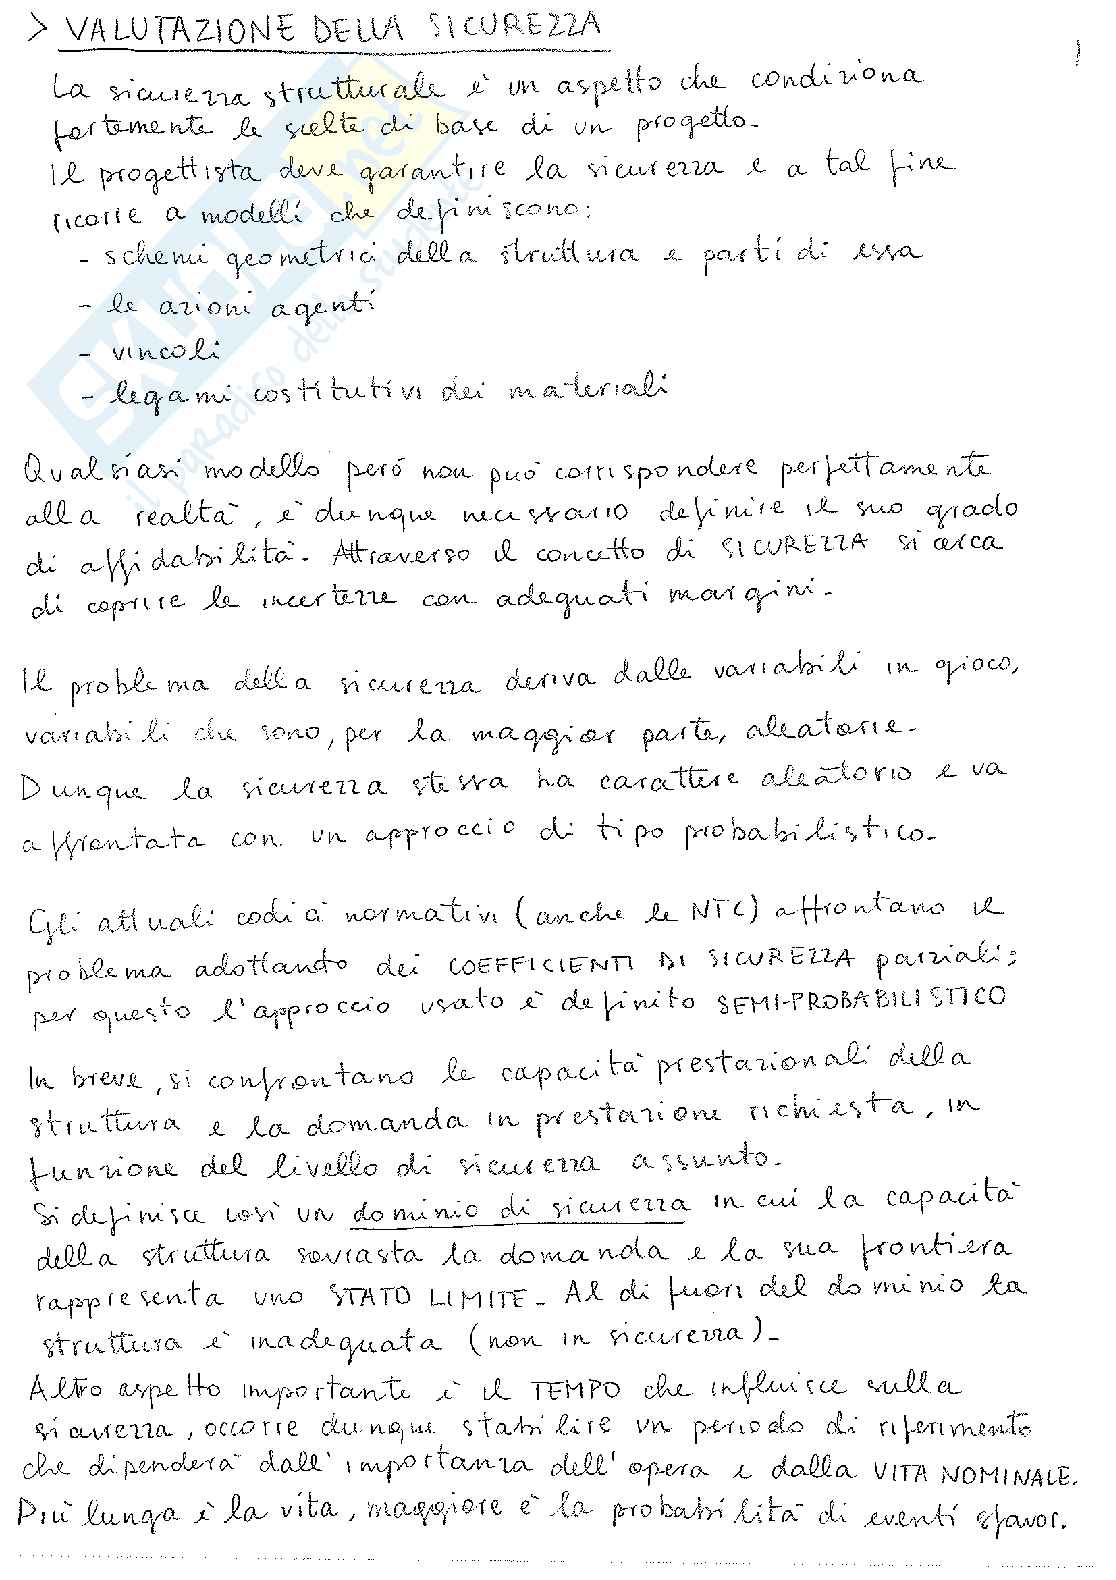 > VALUTAZIONE DELLA SICUREZZA
La sicurezza strutturale è un aspetto che condiziona
fortemente le scelte di base di un progetto.
Il progettista deve garantire la sicurezza e a tal fine
ricorre a modelli che definiscono:
- schemi geometrici della struttura e parti di essa
- le azioni agenti
- vincoli
- legami costitutivi dei materiali
Qualsiasi modello però non può corrispondere perfettamente
alla realtà, è dunque necessario definire il suo grado
di affidabilità. Attraverso il concetto di SICUREZZA si cerca
di coprire le incertezze con adeguati margini.
Il problema della sicurezza deriva dalle variabili in gioco,
variabili che sono, per la maggior parte, aleatorie.
Dunque la sicurezza stessa ha carattere aleatorio e va
affrontata con un approccio di tipo probabilistico.
Gli attuali codici normativi (anche le NTC) affrontano il
problema adottando dei COEFFICIENTI DI SICUREZZA parziali;
per questo l'approccio usato è definito SEMI-PROBABILISTICO
In breve, si confrontano le capacità prestazionali della
struttura e la domanda in prestazione richiesta, in
funzione del livello di sicurezza assunto.
Si definisce così un dominio di sicurezza in cui la capacità
della struttura sovrasta la domanda e la sua frontiera
rappresenta uno STATO LIMITE. Al di fuori del dominio la
struttura è inadeguata (non in sicurezza).
Altro aspetto importante è il TEMPO che influisce sulla
sicurezza, occorre dunque stabilire un periodo di riferimento
che dipenderà dall'importanza dell'opera e dalla VITA NOMINALE.
Più lunga è la vita, maggiore è la probabilità di eventi sfavor.